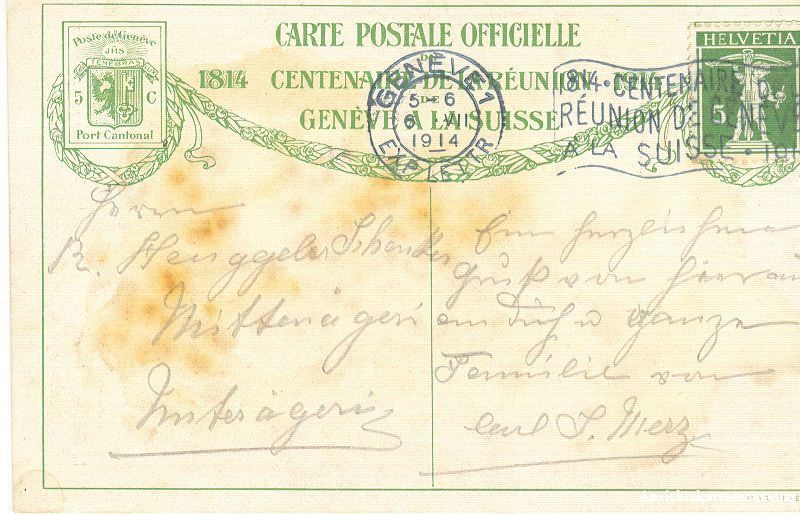 CARTE POSTALE OFFICIELLE
DU
1814 CENTENAIRE DE LA RÉUNION 1914
DE
GENÈVE A LA SUISSE
Poste de Genève
JHS
POST TENEBRAS LUX
5 C
Port Cantonal
GENÈVE 1
5-6
6. VII
1914
EXP. LETTR.
1814 · CENTENAIRE DE LA
RÉUNION DE GENÈVE
A LA SUISSE · 191
HELVETIA
5
Herrn
R. Henggeler Schenker
Mittenägeri
Unterägeri
Ein herzlichen
Gruß von hier aus
an dich u ganze
Familie von
Carl J. Merz